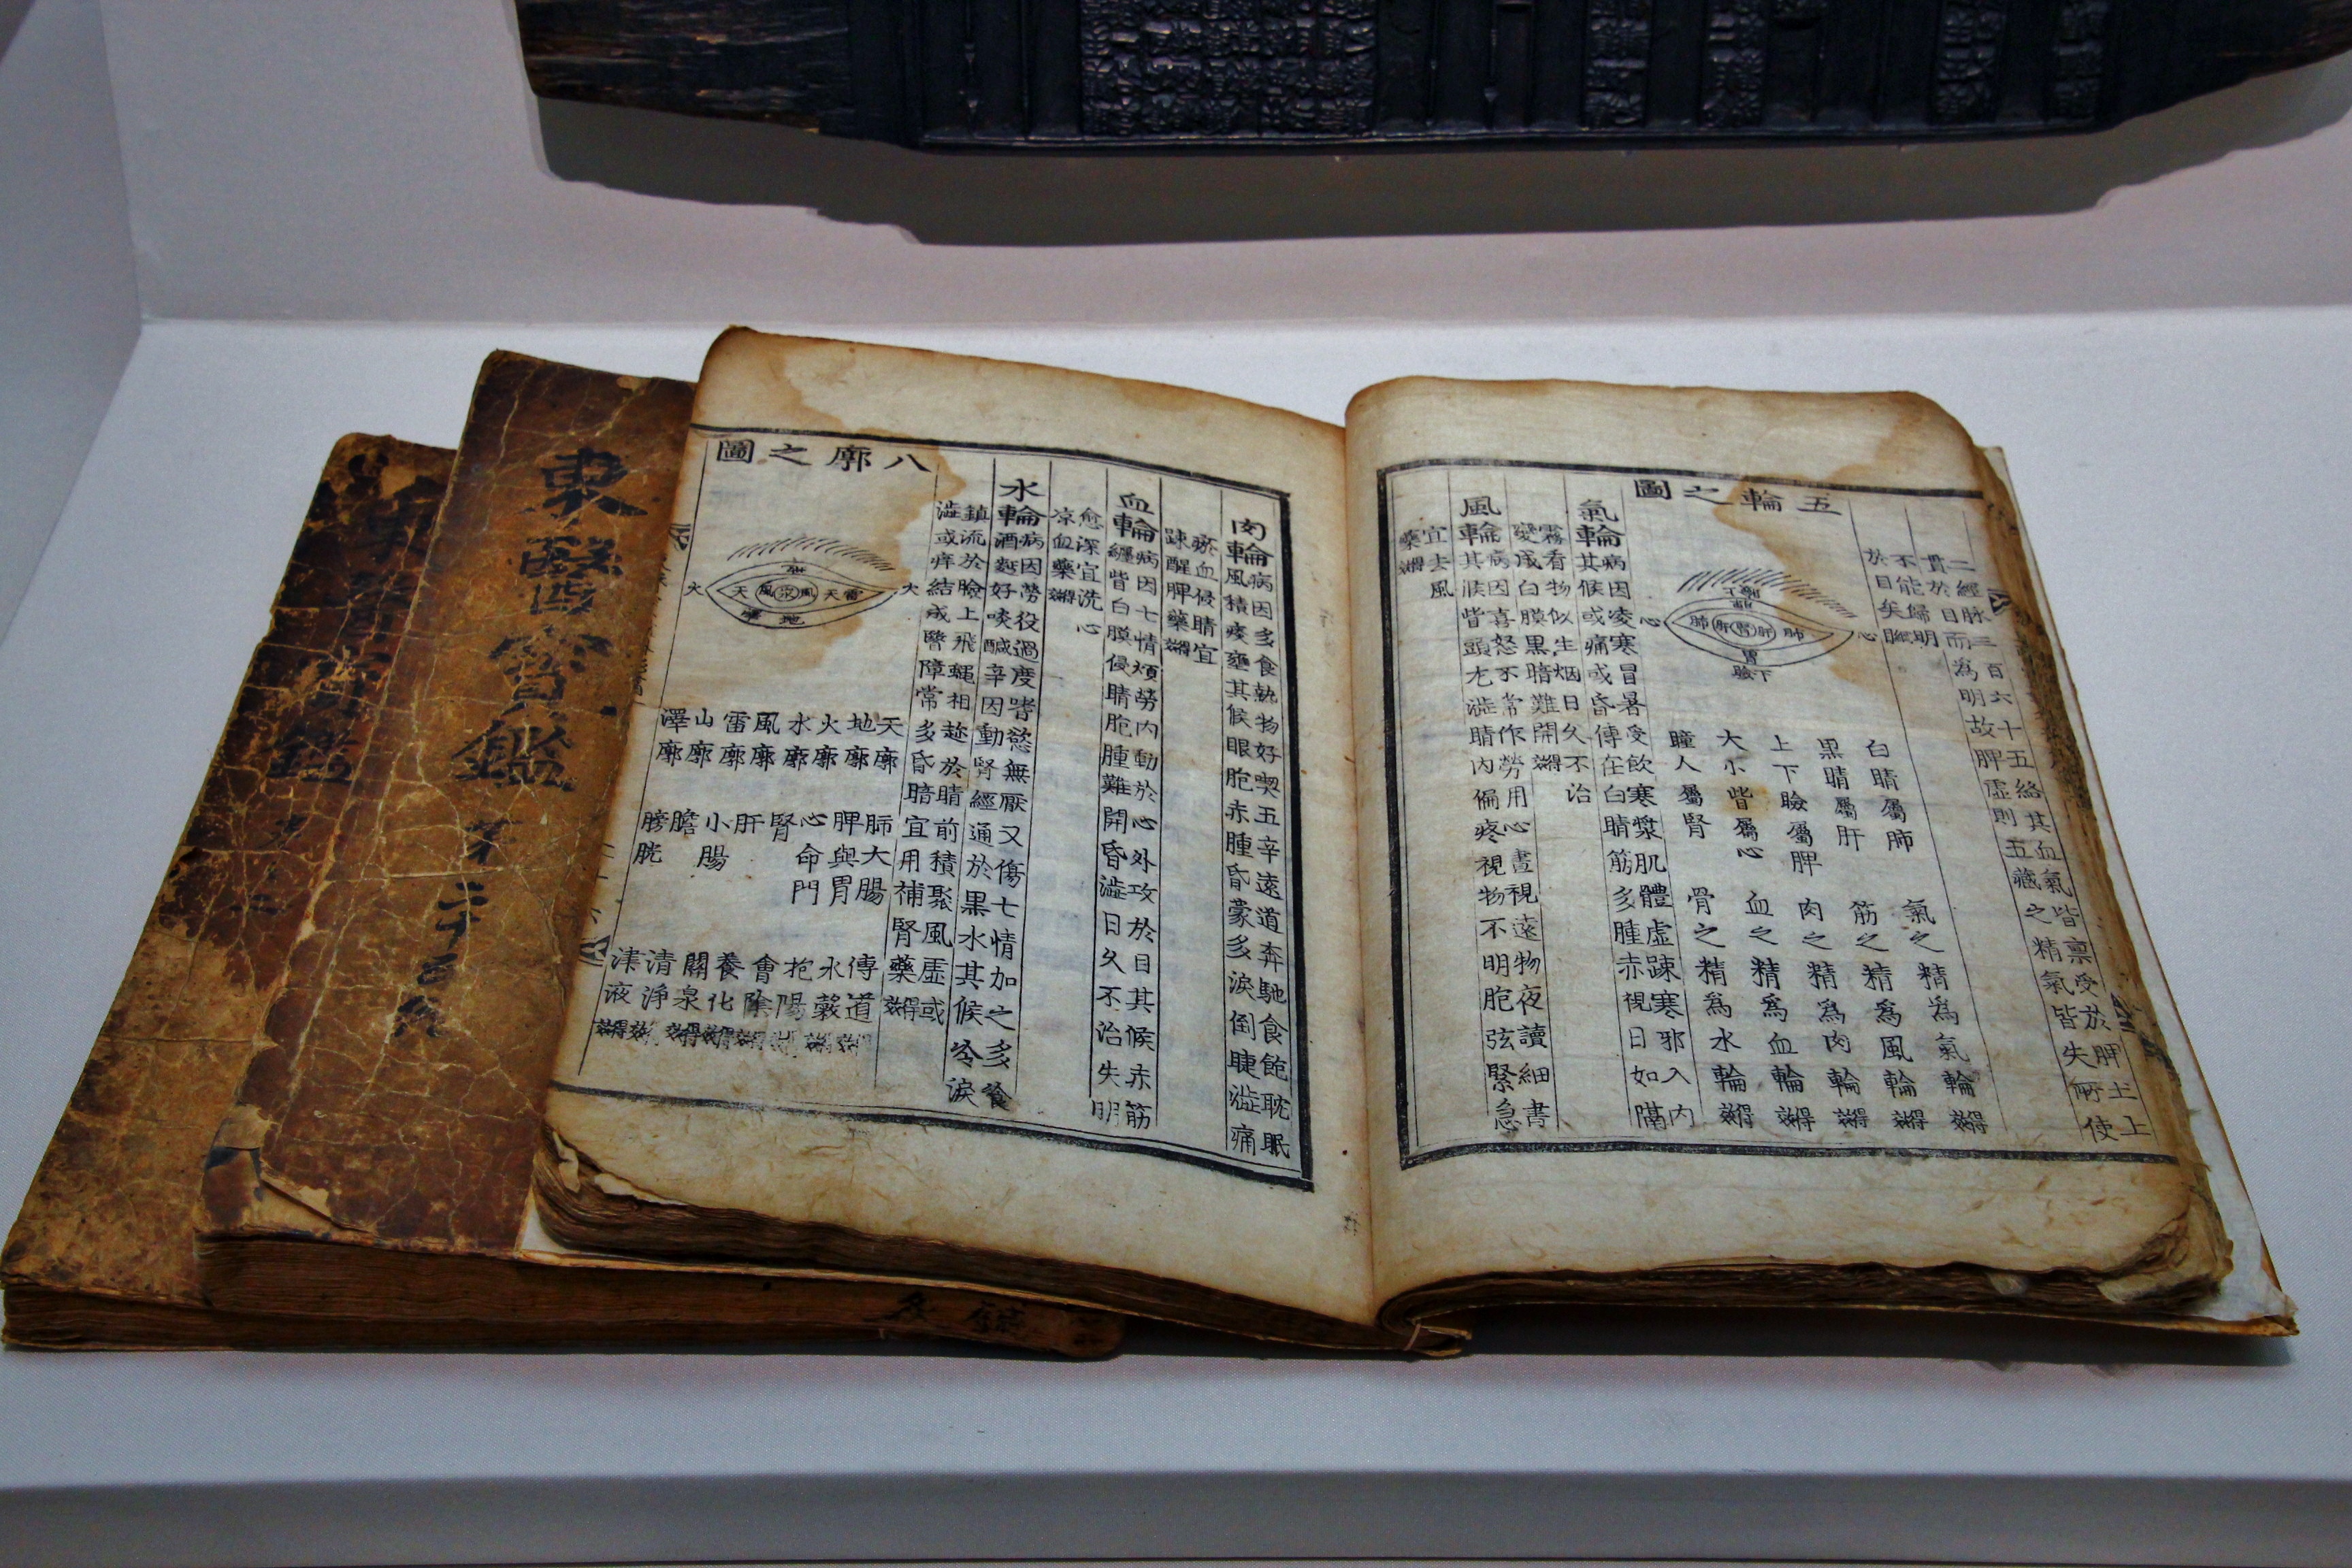 二經脉三百六十五絡其血氣皆禀受於脾土上
貫於目而爲明故脾虛則五藏之精氣皆失所使
不能歸明
於目矣
五輪之圖
心 肺 肝 腎 肝 肺 心
胃
下瞼
白睛屬肺 氣之精爲氣輪 得效
黑睛屬肝 筋之精爲風輪 得效
上下瞼屬脾 肉之精爲肉輪 得效
大小眥屬心 血之精爲血輪 得效
瞳人屬腎 骨之精爲水輪 得效
氣輪
病因凌寒冒暑受飮寒漿肌體虛踈寒邪入內
其候或痛或昏傳在白睛筋多腫赤視日如隔
霧看物似生烟日久不治
變成白膜黑暗難開得效
風輪
病因喜怒不常作勞用心晝視遠物夜讀細書
其候眥頭尤澁睛內偏疼視物不明胞弦緊急
宜去風
藥得效
肉輪
病因多食熱物好喫五辛遠道奔馳食飽耽眠
風積痰壅其候眼胞赤腫昏蒙多淚倒睫澁痛
瘀血侵睛宜
踈醒脾藥得效
血輪
病因七情煩勞內動於心外攻於目其候赤筋
纏眥白膜侵睛胞腫難開昏澁日久不治失明
愈深宜洗心
凉血藥得效
水輪
病因勞役過度嗜慾無厭又傷七情加之多餐
酒麪好啖鹹辛因動腎經通於黑水其候冷淚
鎮流於瞼上飛蠅相趂於睛前積聚風虛或
澁或痒結成瞖障常多昏暗宜用補腎藥得效
八廓之圖
火 天 風 水 風 天 雷 火
澤 地
天廓 肺大腸 傳道 得效
地廓 脾與胃 水穀 得效
火廓 心命門 抱陽 得效
水廓 腎 會陰 得效
風廓 肝 養化 得效
雷廓 小腸 關泉 得效
山廓 膽 清淨 得效
澤廓 膀胱 津液 得效
東醫寶鑑